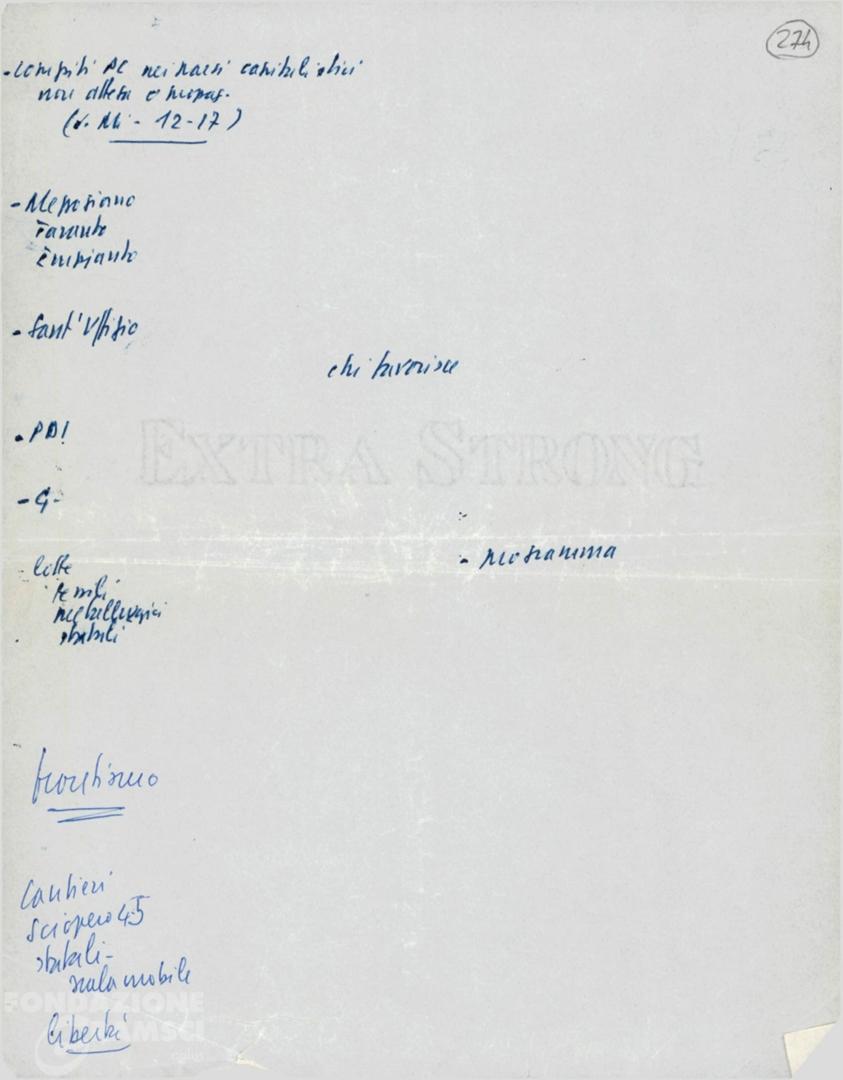 274
- Compiti PC nei paesi capitalistici
non attesa o propag.
(v. Mi - 12-17)
- Meposiano
Taranto
Impianto
- Sant'Uffizio
chi favorisce
- PDI
EXTRA STRONG
- G -
- programma
- lotte
tessili
metallurgici
statali
frontismo
Cantieri
Sciopero 45
statali -
scala mobile
libertà
FONDAZIONE
GRAMSCI